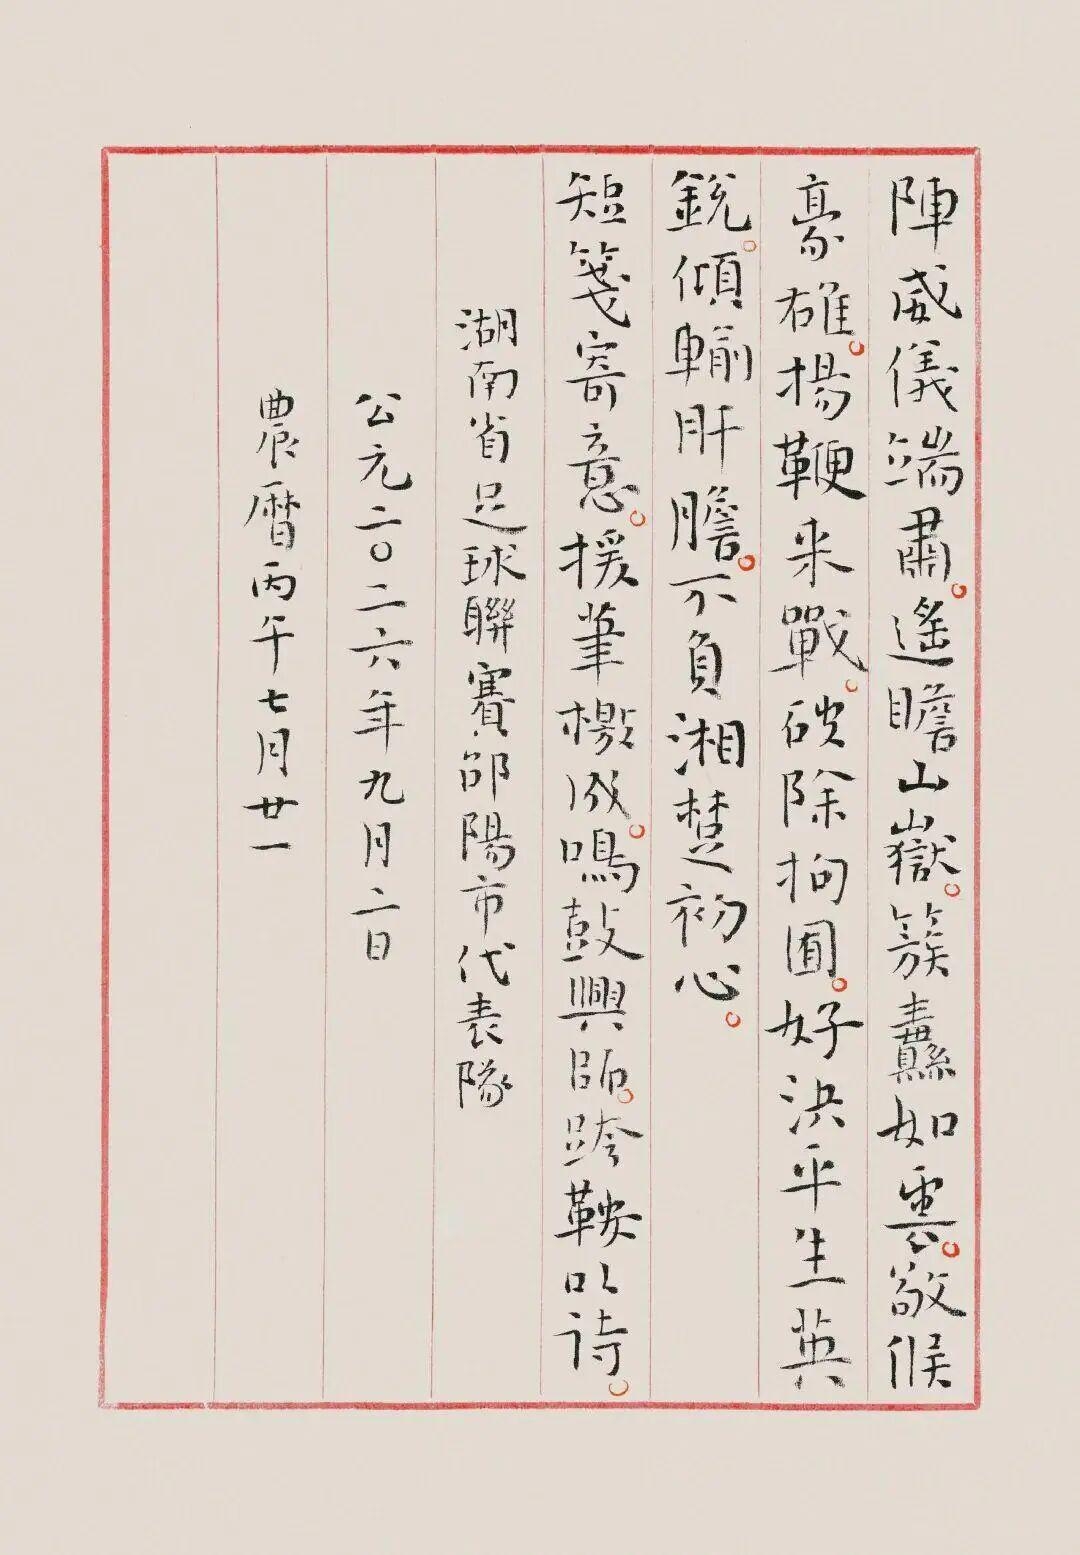 陣威儀端肅。遙瞻山嶽。簇纛如雲。敬候
豪雄。揚鞭来戰。破除拘囿。好洪平生英
銳。傾輸肝膽。不負湘楚初心。
短箋寄意。援筆檄成。鳴鼓興師。跨鞍以詩。
湖南省足球聯賽邵陽市代表隊
公元二〇二六年九月二日
農曆丙午七月廿一